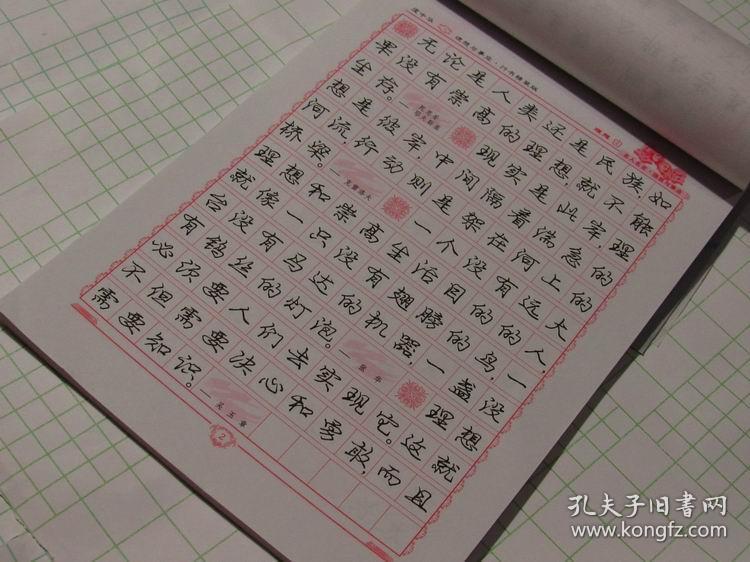 无论是人类还是民族,如
果没有崇高的理想,就不能
生存。—
现实是此岸,理
想是彼岸,中间隔着湍急的
河流,行动则是架在河上的
桥梁。—克雷洛夫
一个没有远大
理想和崇高生活目的的人,
就像一只没有翅膀的鸟,一
台没有马达的机器,一盏没
有钨丝的灯泡。—张华
理想
必须要人们去实现它。这就
不但需要决心和勇敢,而且
需要知识。—吴玉章
2
孔夫子旧书网
www.kongfz.com